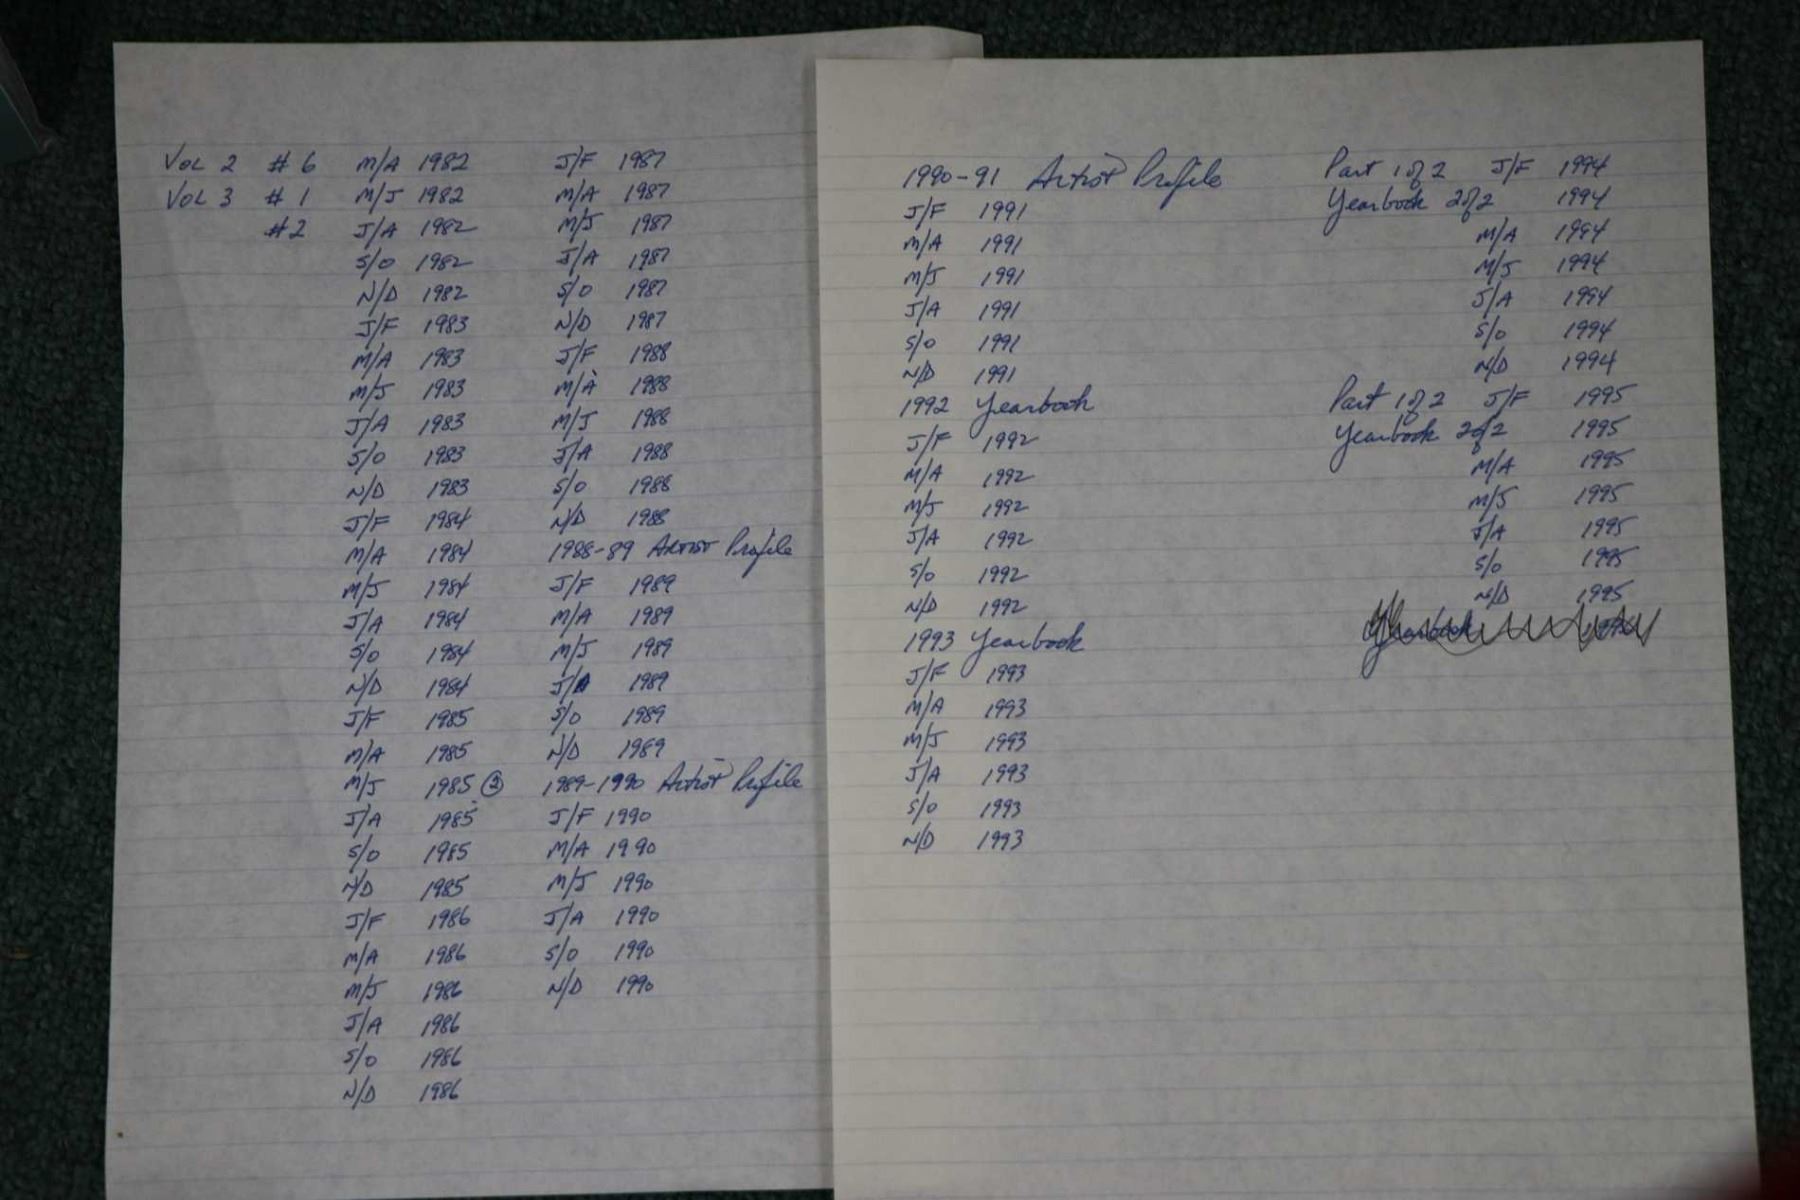 Vol 2 # 6 M/A 1982
Vol 3 # 1 M/J 1982
#2 J/A 1982
S/O 1982
N/D 1982
J/F 1983
M/A 1983
M/J 1983
J/A 1983
S/O 1983
N/D 1983
J/F 1984
M/A 1984
M/J 1984
J/A 1984
S/O 1984
N/D 1984
J/F 1985
M/A 1985
M/J 1985 ②
J/A 1985
S/O 1985
N/D 1985
J/F 1986
M/A 1986
M/J 1986
J/A 1986
S/O 1986
N/D 1986
J/F 1987
M/A 1987
M/J 1987
J/A 1987
S/O 1987
N/D 1987
J/F 1988
M/A 1988
M/J 1988
J/A 1988
S/O 1988
N/D 1988
1988-89 Artist Profile
J/F 1989
M/A 1989
M/J 1989
J/A 1989
S/O 1989
N/D 1989
1989-1990 Artist Profile
J/F 1990
M/A 1990
M/J 1990
J/A 1990
S/O 1990
N/D 1990
1990-91 Artist Profile
J/F 1991
M/A 1991
M/J 1991
J/A 1991
S/O 1991
N/D 1991
1992 Yearbook
J/F 1992
M/A 1992
M/J 1992
J/A 1992
S/O 1992
N/D 1992
1993 Yearbook
J/F 1993
M/A 1993
M/J 1993
J/A 1993
S/O 1993
N/D 1993
Part 1 of 2 J/F 1994
Yearbook 2 of 2 1994
M/A 1994
M/J 1994
J/A 1994
S/O 1994
N/D 1994
Part 1 of 2 J/F 1995
Yearbook 2 of 2 1995
M/A 1995
M/J 1995
J/A 1995
S/O 1995
N/D 1995
Yearbook